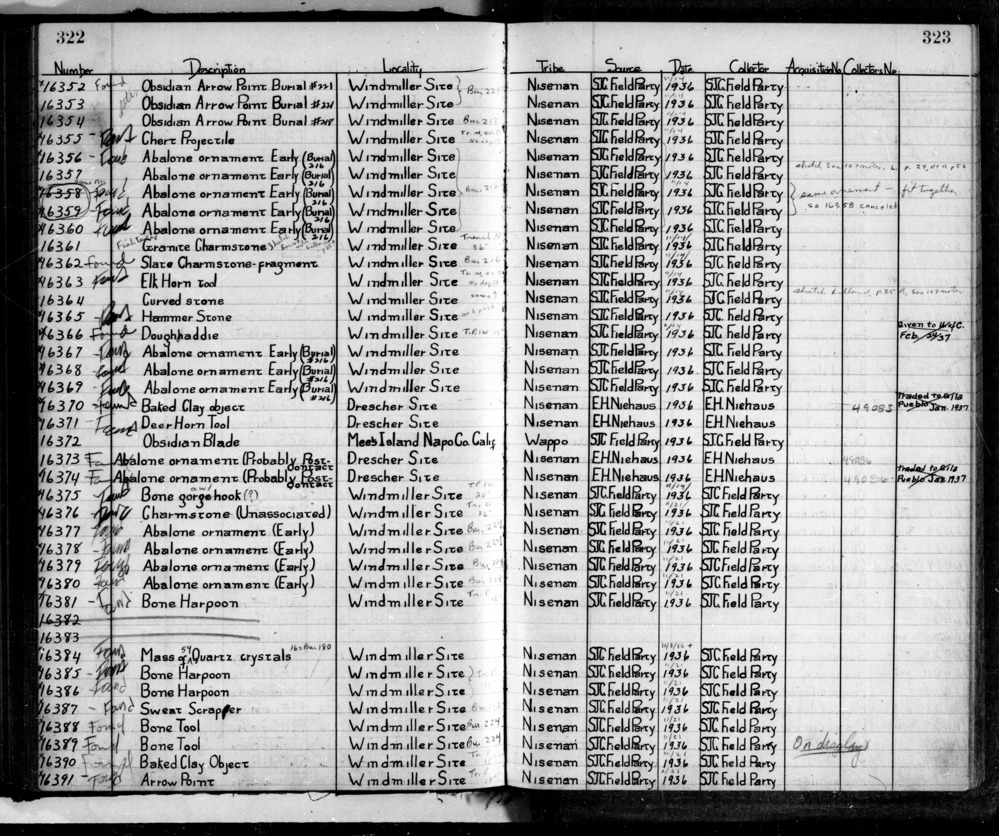 322
323
Number Description Locality Tribe Source Date Collector Acquisition No. Collectors No.
16352 Found Obsidian Arrow Point Burial #221 Windmiller Site Bur. 221 Nisenan SJC. Field Party 11/14 1936 SJC. Field Party
16353 Obsidian Arrow Point Burial #221 Windmiller Site Nisenan SJC. Field Party 11/14 1936 SJC. Field Party
16354 Obsidian Arrow Point Burial #218 Windmiller Site Bur. 218 Nisenan SJC. Field Party 1936 SJC. Field Party
16355 - Found Chert Projectile Windmiller Site Nisenan SJC. Field Party 1936 SJC. Field Party
16356 - Found Abalone ornament Early (Burial) 216 Windmiller Site Nisenan SJC. Field Party 1936 SJC. Field Party
16357 Abalone ornament Early (Burial) 216 Windmiller Site Nisenan SJC. Field Party 1936 SJC. Field Party
16358 Found Abalone ornament Early (Burial) 216 Windmiller Site Bur. 216 Nisenan SJC. Field Party 1936 SJC. Field Party same ornament - fit together
16359 - Found Abalone ornament Early (Burial) 216 Windmiller Site Nisenan SJC. Field Party 1936 SJC. Field Party so 16358 canceled
16360 Found Abalone ornament Early (Burial) 216 Windmiller Site Nisenan SJC. Field Party 1936 SJC. Field Party
16361 Granite Charmstone Windmiller Site Nisenan SJC. Field Party 11/14/ 1936 SJC. Field Party
16362 Found Slate Charmstone-fragment Windmiller Site Bur. 216 Nisenan SJC. Field Party 11/14/ 1936 SJC. Field Party
16363 Found Elk Horn Tool Windmiller Site Nisenan SJC. Field Party 11/14 1936 SJC. Field Party
16364 Curved stone Windmiller Site Nisenan SJC. Field Party 11/14 1936 SJC. Field Party
16365 - Found Hammer Stone Windmiller Site Nisenan SJC. Field Party 1936 SJC. Field Party
16366 Found Doughhaddie Windmiller Site Nisenan SJC. Field Party 11/14 1936 SJC. Field Party Given to Wof C. Feb. 37
16367 - Found Abalone ornament Early (Burial) #216 Windmiller Site Nisenan SJC. Field Party 1936 SJC. Field Party
16368 - Found Abalone ornament Early (Burial) #216 Windmiller Site Nisenan SJC. Field Party 1936 SJC. Field Party
16369 - Found Abalone ornament Early (Burial) #216 Windmiller Site Nisenan SJC. Field Party 1936 SJC. Field Party
16370 - Found Baked Clay object Drescher Site Nisenan E.H. Niehaus 1936 E.H. Niehaus 49083 Traded to Gila Pueblo Jan. 1937
16371 - Found Deer Horn Tool Drescher Site Nisenan E.H. Niehaus 1936 E.H. Niehaus
16372 Obsidian Blade Mee's Island Napo Co. Calif. Wappo SJC Field Party 1936 SJC Field Party
16373 Abalone ornament (Probably Post-contact Drescher Site Nisenan E.H. Niehaus 1936 E.H. Niehaus 49086
16374 Abalone ornament (Probably Post-contact Drescher Site Nisenan E.H. Niehaus 1936 E.H. Niehaus 49086 Traded to Gila Pueblo Jan. 1937
16375 - Found Bone gorge hook (?) Windmiller Site Nisenan SJC. Field Party 11/14/ 1936 SJC. Field Party
16376 Found Charmstone (Unassociated) Windmiller Site Nisenan SJC. Field Party 11/21/ 1936 SJC. Field Party
16377 Found Abalone ornament (Early) Windmiller Site Bur. 224 Nisenan SJC. Field Party 11/21 1936 SJC. Field Party
16378 - Found Abalone ornament (Early) Windmiller Site Bur. 224 Nisenan SJC. Field Party 11/21 1936 SJC. Field Party
16379 Found Abalone ornament (Early) Windmiller Site Bur. 224 Nisenan SJC. Field Party 11/21 1936 SJC. Field Party
16380 Found Abalone ornament (Early) Windmiller Site Bur. 224 Nisenan SJC. Field Party 11/21 1936 SJC. Field Party
16381 - Found Bone Harpoon Windmiller Site Nisenan SJC. Field Party 11/21 1936 SJC. Field Party
16382
16383
16384 Found Mass of 54 Quartz crystals Bur. 180 Windmiller Site Nisenan SJC. Field Party 1936 SJC. Field Party
16385 - Found Bone Harpoon Windmiller Site Nisenan SJC. Field Party 11/21 1936 SJC. Field Party
16386 - Found Bone Harpoon Windmiller Site Nisenan SJC. Field Party 11/21 1936 SJC. Field Party
16387 - Found Sweat Scrapper Windmiller Site Nisenan SJC. Field Party 11/21 1936 SJC. Field Party
16388 Found Bone Tool Windmiller Site Bur. 224 Nisenan SJC. Field Party 11/21 1936 SJC. Field Party
16389 Found Bone Tool Windmiller Site Bur. 224 Nisenan SJC. Field Party 11/21 1936 SJC. Field Party On display
16390 Found Baked Clay Object Windmiller Site Nisenan SJC. Field Party 11/21 1936 SJC. Field Party
16391 - Found Arrow Point Windmiller Site Nisenan SJC. Field Party 11/21 1936 SJC. Field Party